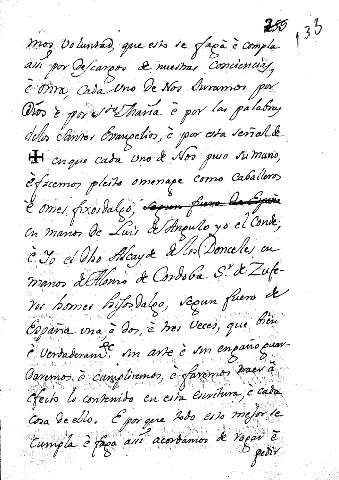 255
133
mos voluntad, que esto se faga è cumpla
assi por descargos de nuestras Conciencias,
è otra cada uno de Nos Juramos por
Dios è por Sta Maria è por las palabras
de los Santos Evangelios, è por esta señal de
✠ en que cada uno de Nos puso su mano,
è facemos pleito omenage como Caballeros
è omes fixosdalgo, segun fuero de España
en manos de Luis de Angulo yo el Conde,
è Yo el dho Alcayde de los Donceles en
manos de Alonso de Cordoba Sr. de Zufe-
ros homes hijosdalgo, segun fuero de
España una, è dos, è tres veces, que bien
è verdaderamte. sin arte è sin engaño guar-
daremos, è cumpliremos, è faremos traer à
efeto lo contenido en esta escritura, è cada
cosa de ello. E por que todo esto mejor se
cumpla è faga assi acordamos de rogar è
pedir